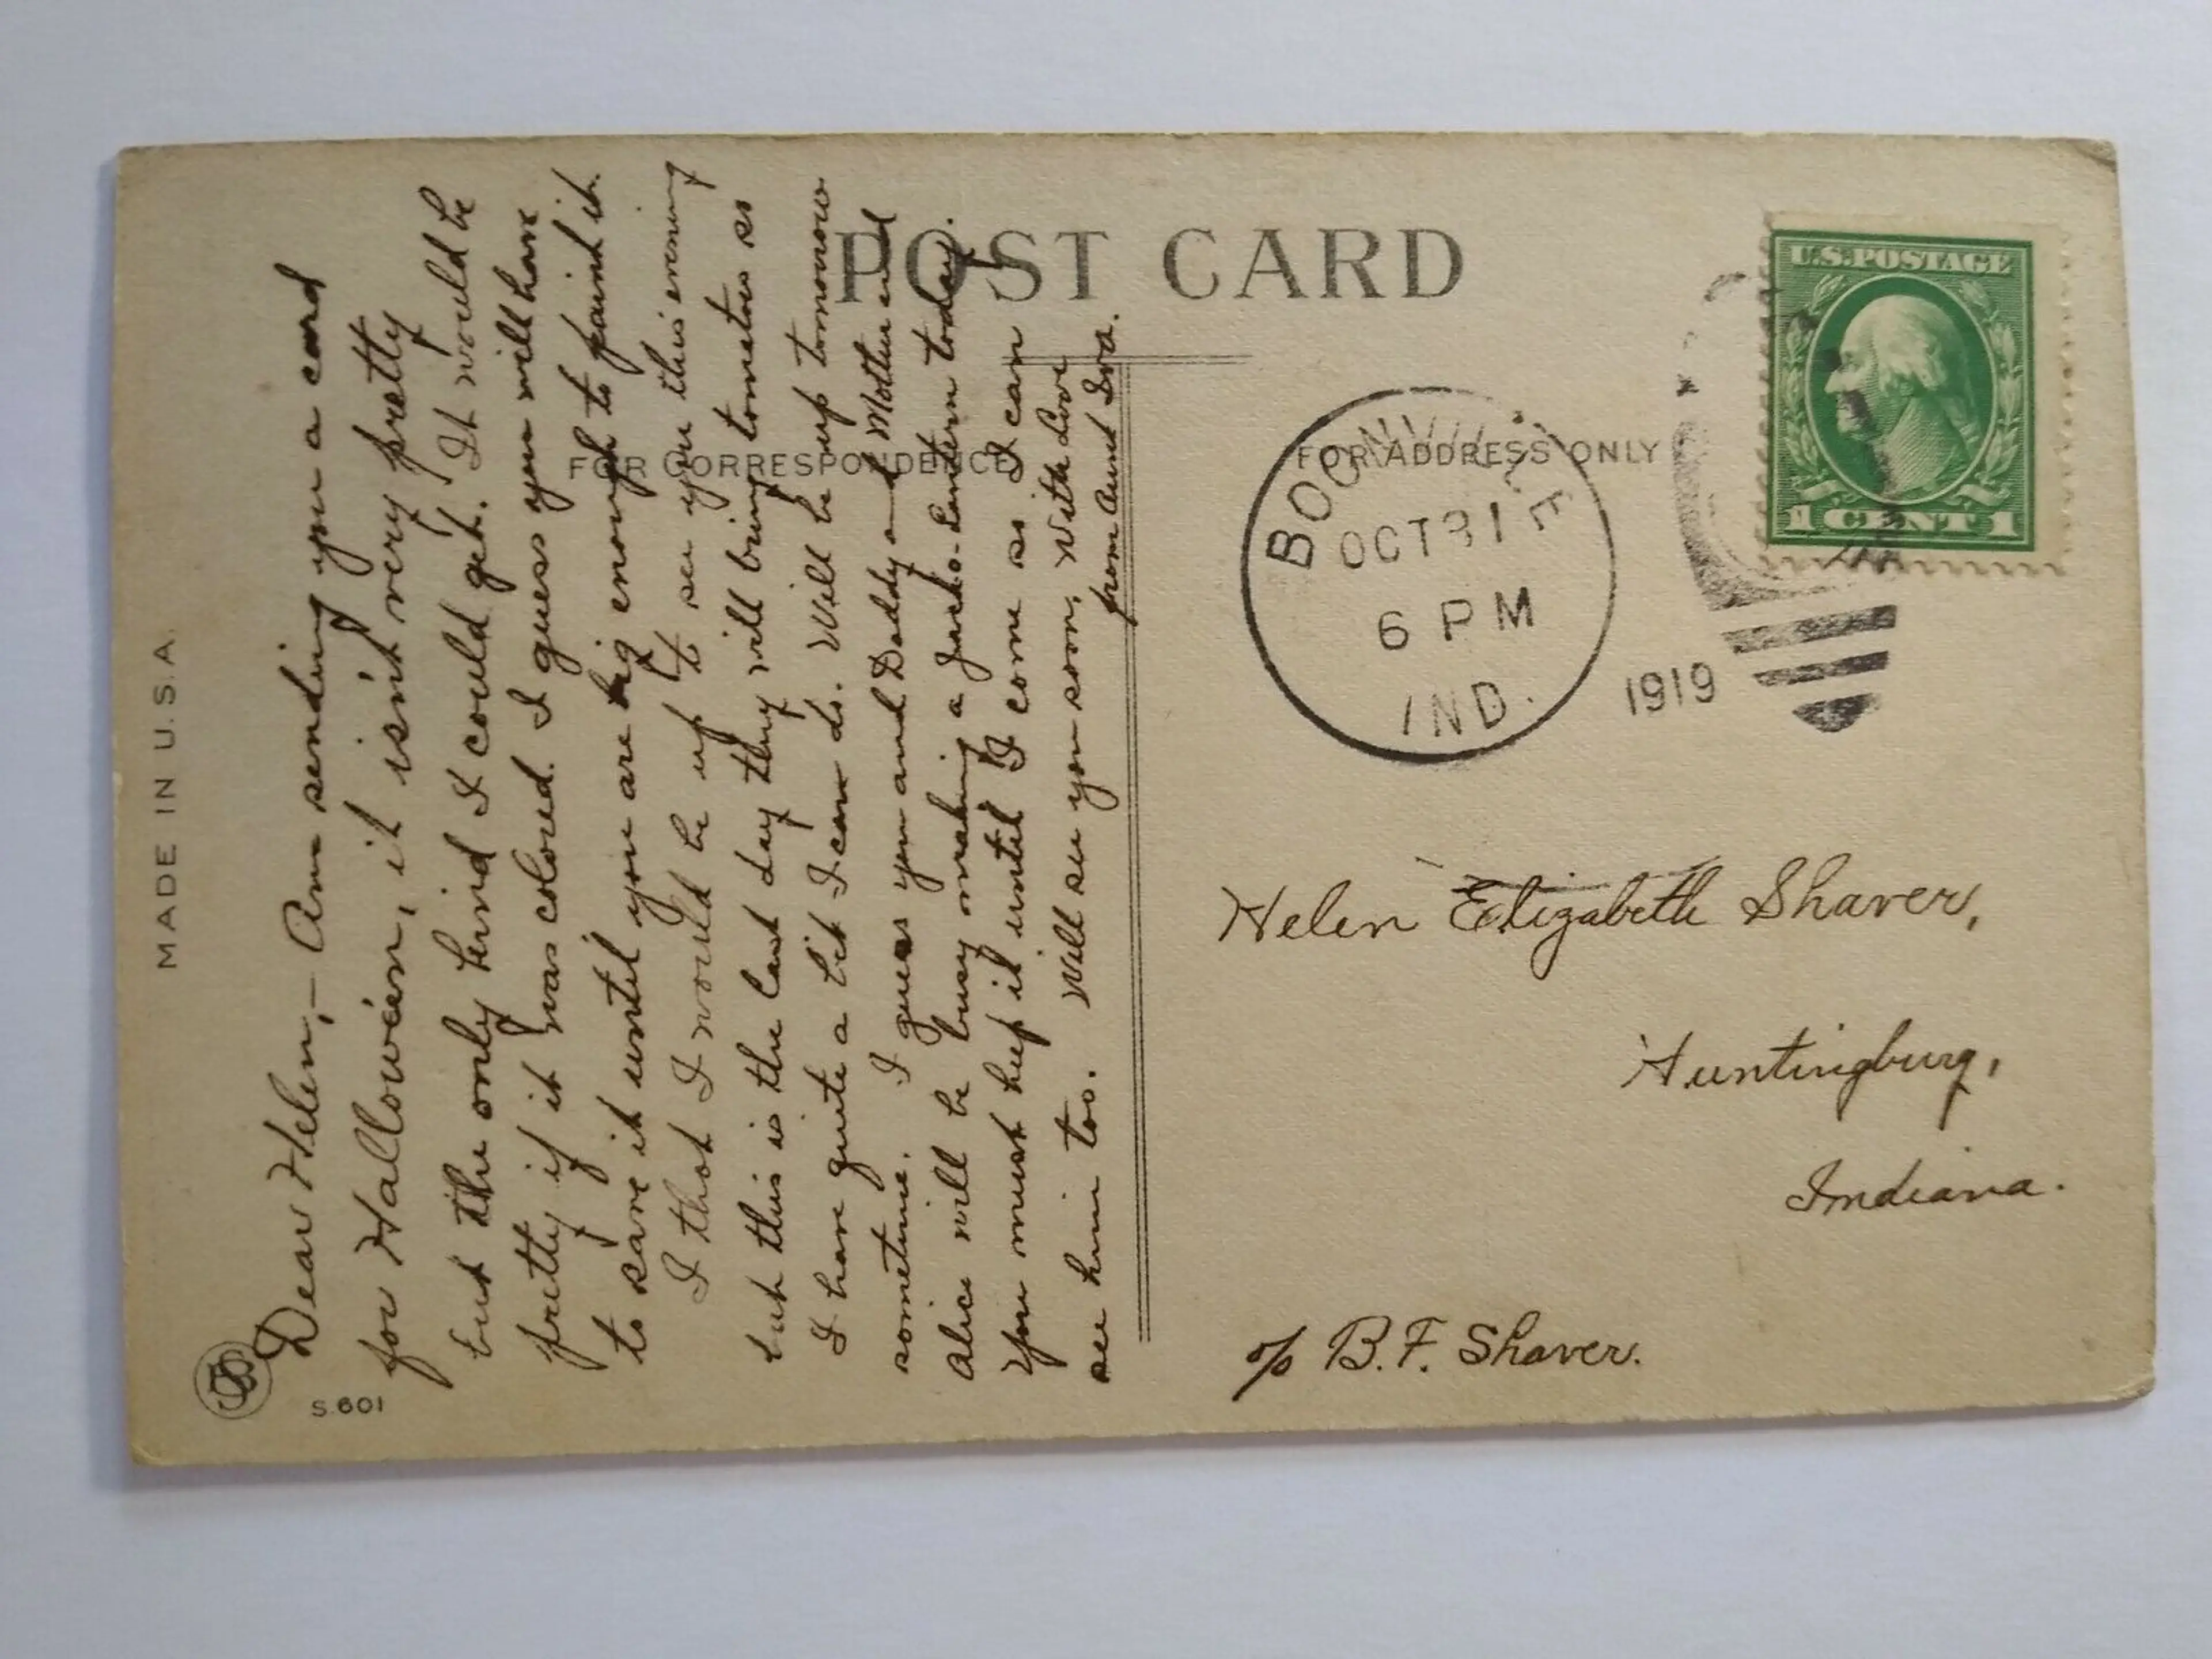 POST CARD
FOR CORRESPONDENCE
FOR ADDRESS ONLY
MADE IN U.S.A.
S.601
U.S. POSTAGE
1 CENT 1
BOONVILLE
OCT 31
6 PM
IND.
1919
Dear Helen,- Am sending you a card
for Hallowe'en, it isn't very pretty
but the only kind I could get. It would be
pretty if it was colored. I guess you will have
to save it until you are big enough to paint it.
I thot I would be up to see you this evening
but this is the last day they will bring tomatoes so
I have quite a bit I can do. Will be up tomorrow
sometime. I guess you and Daddy and Mother and
Alice will be busy making a Jack-o-Lantern today.
You must keep it until I come so I can
see him too. Will see you soon, With Love
from Aunt Iva.
Helen Elizabeth Shaver,
Huntingburg,
Indiana.
c/o B.F. Shaver.